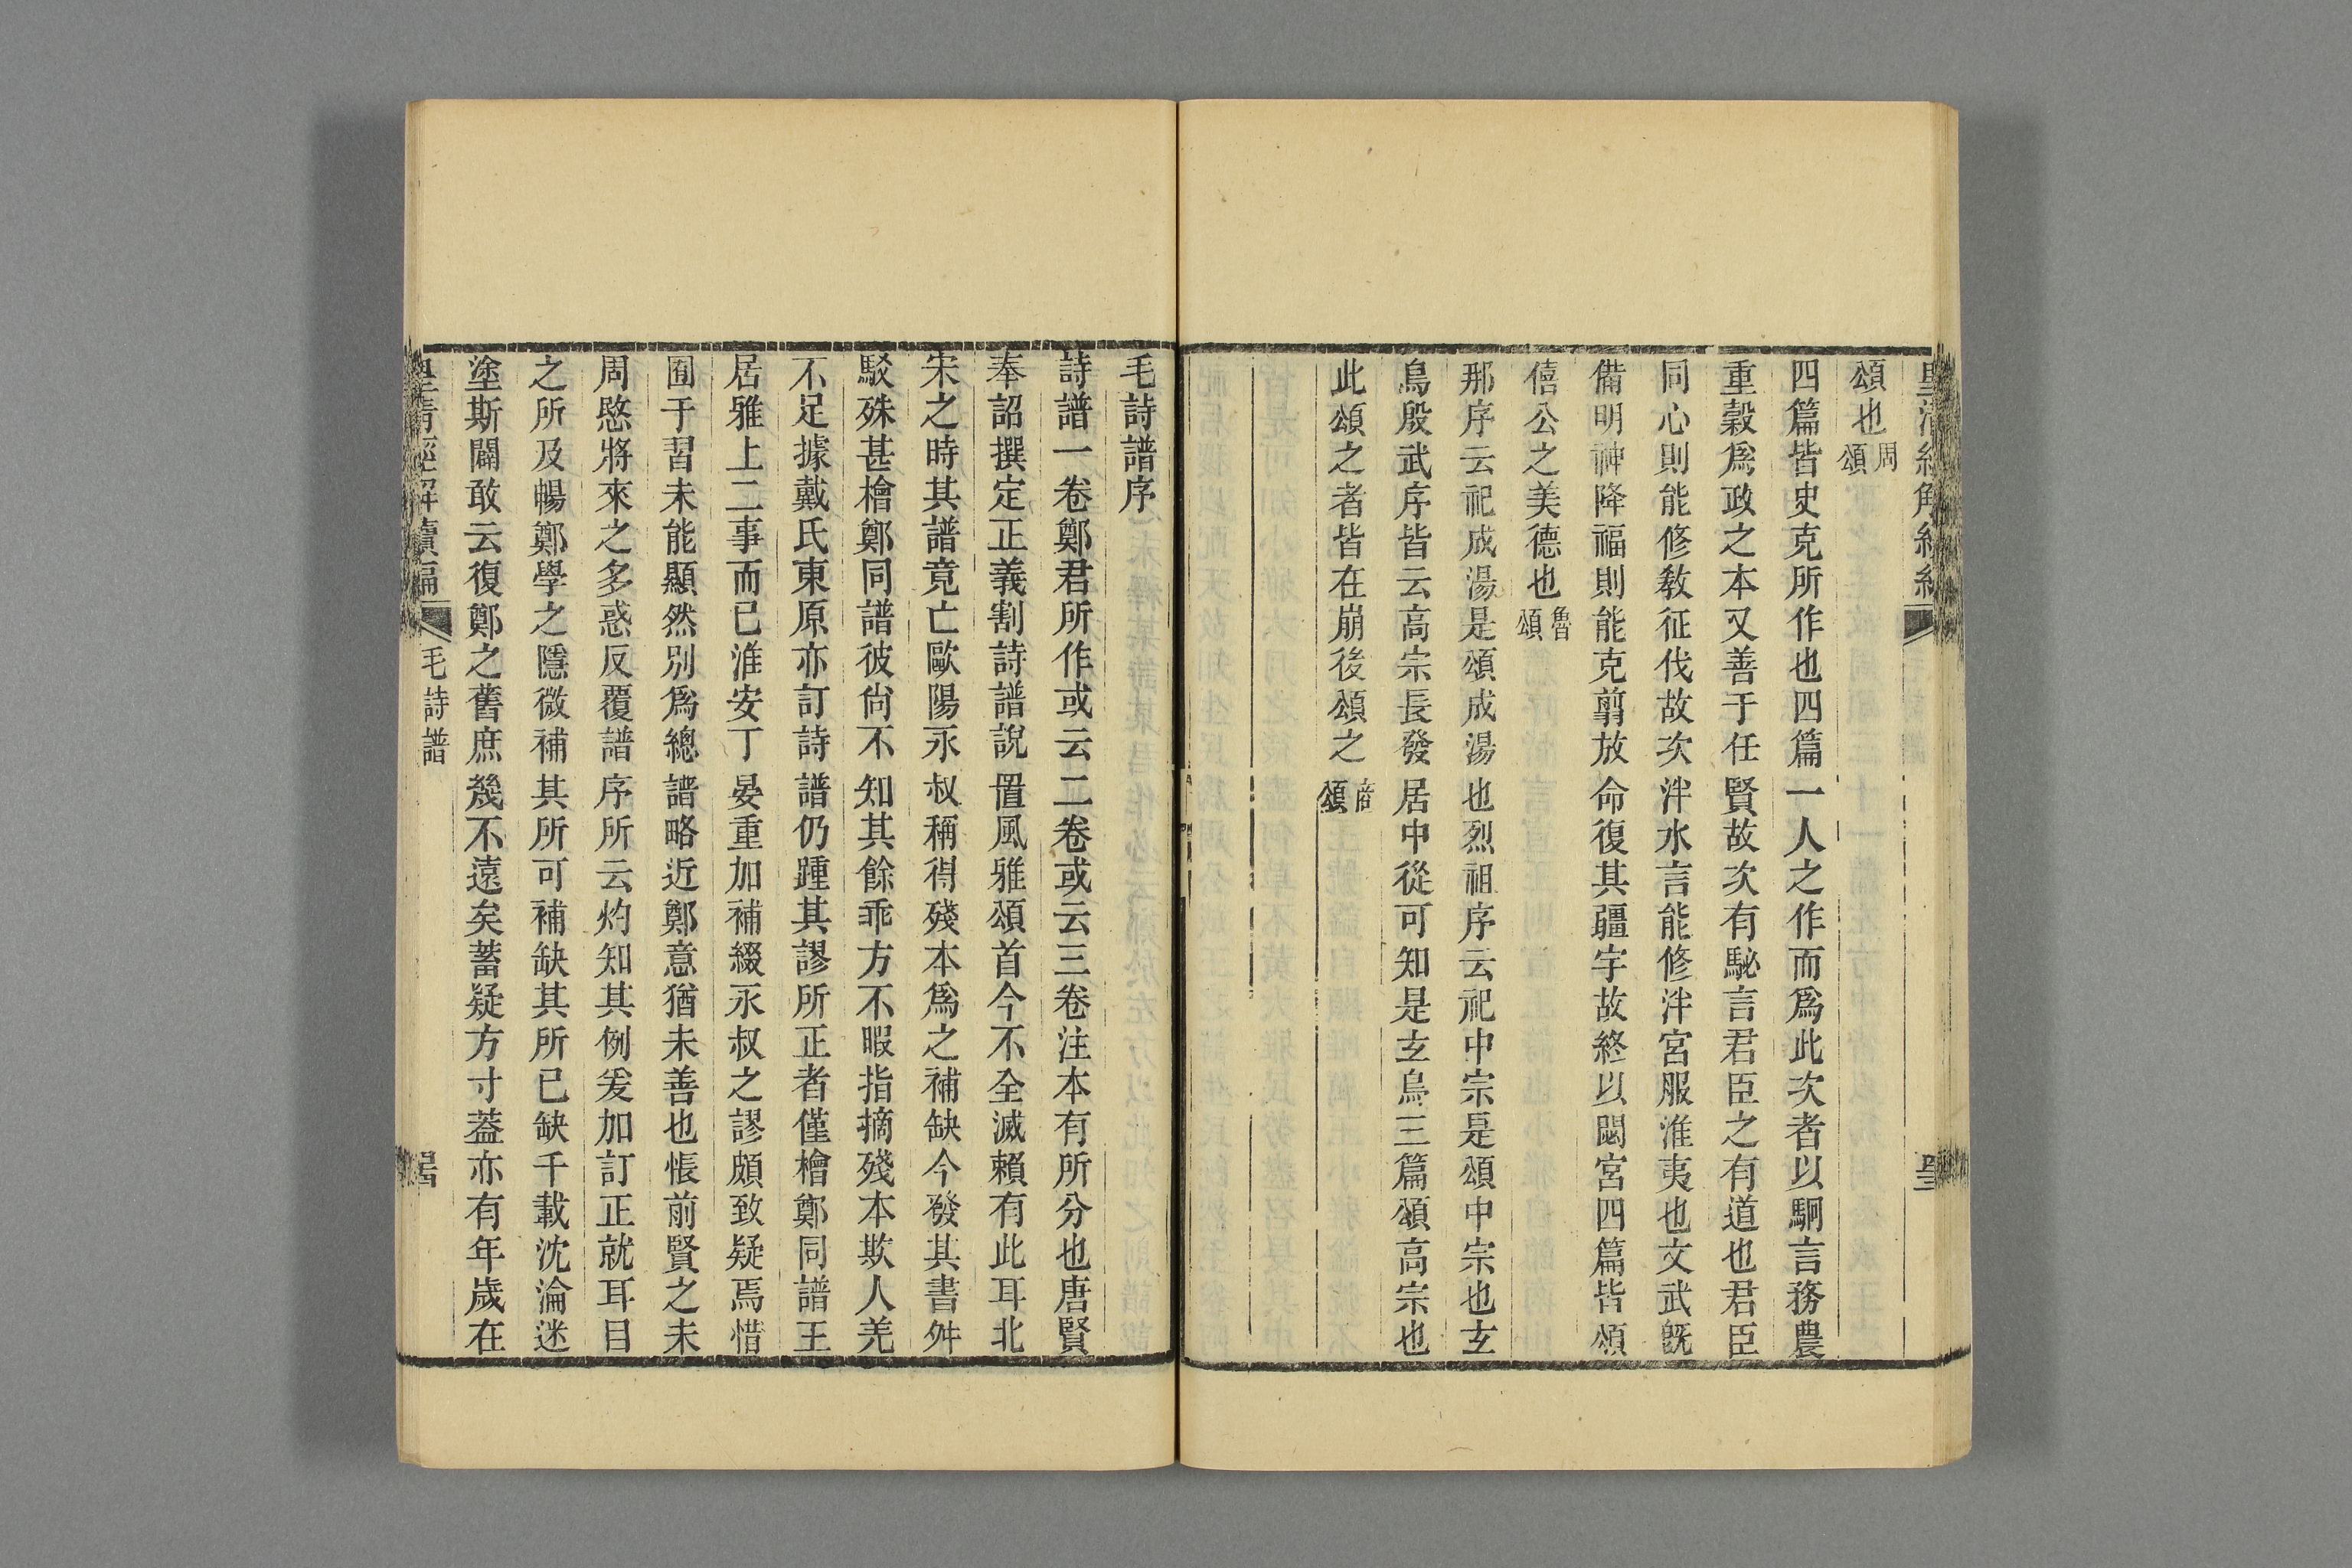 頌也周頌
四篇皆史克所作也四篇一人之作而爲此次者以駉言務農
重穀爲政之本又善于任賢故次有駜言君臣之有道也君臣
同心則能修敎征伐故次泮水言能修泮宮服淮夷也文武旣
備明神降福則能克翦放命復其疆宇故終以閟宮四篇皆頌
僖公之美德也魯頌
那序云祀成湯是頌成湯也烈祖序云祀中宗是頌中宗也玄
鳥殷武序皆云高宗長發居中從可知是玄鳥三篇頌高宗也
此頌之者皆在崩後頌之商頌
毛詩譜序
詩譜一卷鄭君所作或云二卷或云三卷注本有所分也唐賢
奉詔撰定正義割詩譜說置風雅頌首今不全滅賴有此耳北
宋之時其譜竟亡歐陽永叔稱得殘本爲之補缺今發其書舛
駁殊甚檜鄭同譜彼尙不知其餘乖方不暇指摘殘本欺人羌
不足據戴氏東原亦訂詩譜仍踵其謬所正者僅檜鄭同譜王
居雅上二事而已淮安丁晏重加補綴永叔之謬頗致疑焉惜
囿于習未能顯然別爲總譜略近鄭意猶未善也悵前賢之未
周愍將來之多惑反覆譜序所云灼知其例爰加訂正就耳目
之所及暢鄭學之隱微補其所可補缺其所已缺千載沈淪迷
塗斯闢敢云復鄭之舊庶幾不遠矣蓄疑方寸蓋亦有年歲在
皇淸經解續編 毛詩譜